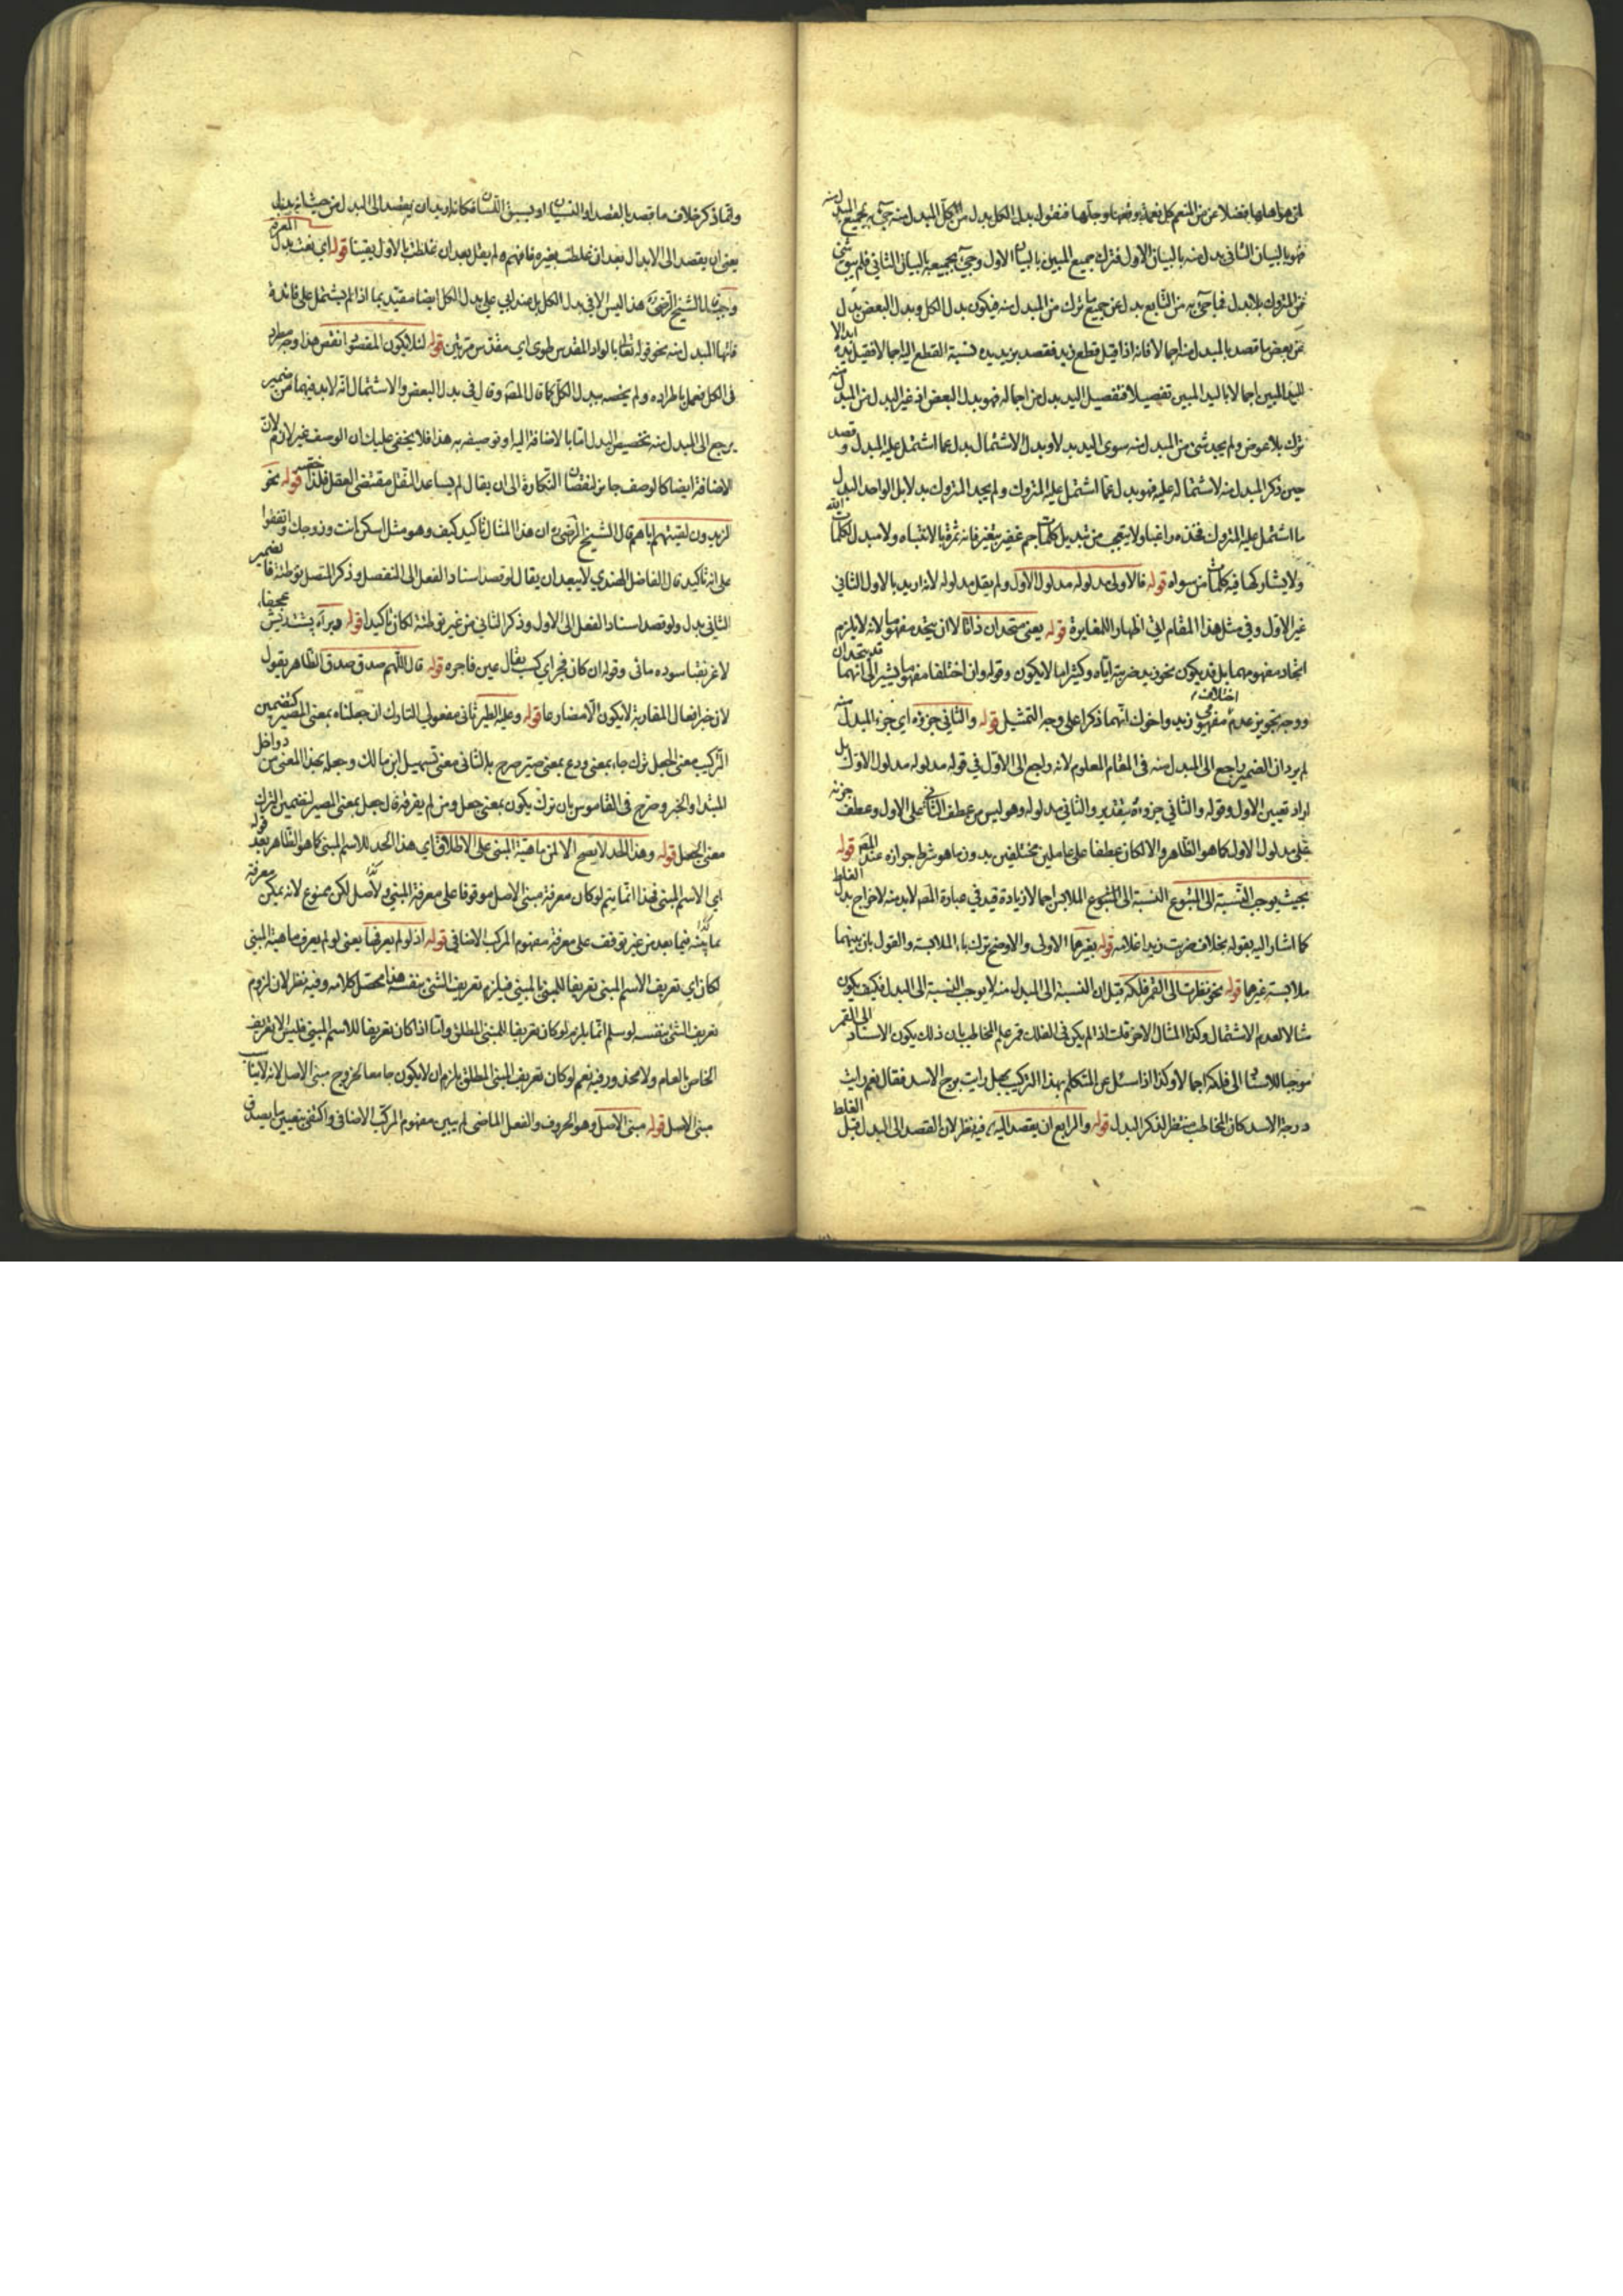 لمن هو اهلها فضلا عن من المنعم كل نعمة دقها وجلها فنقول بدل الكل بدل من الكل المبدل منه جيء به بجميع المبدل منه
فهو بالبيان الثاني بدل منه بالبيان الاول فترك جميع المبين بالبيان الاول وجيء بجميعه بالبيان الثاني فلم يبق شيء
من المتروك بلا بدل فما جيء به من التابع بدل عن جميع ما ترك من المبدل منه فيكون بدل الكل وبدل البعض بدل
عن بعض ما قصد بالمبدل منه اجمالا فانه اذا قيل قطع زيد فقصد بزيد يده فنسبة القطع اليها اجمالا فقيل يده ابدالا
لليد المبين اجمالا باليد المبين تفصيلا فتفصيل اليد بدل من اجماله فهو بدل البعض اذ غير البدل من المبدل منه
ترك بلا عوض ولم يجد شيء من المبدل منه سوى اليد بدلا وبدل الاشتمال بدل عما اشتمل عليه المبدل وقصد
حين ذكر المبدل منه لاشتماله عليه فهو بدل عما اشتمل عليه المتروك ولم يجد المتروك بدلا بل الواحد البدل
ما اشتمل عليه المتروك فخذه واغبا ولا يتعجب من تبديل كلمات جم غفير بتغير فانه ثمرة بالانتباه ولا مبدل لكلمات الله
ولا يشاركها فيه كلمات من سواه قوله فالاولى مدلوله مدلول الاول ولم يقل مدلوله لانه اريد بالاول الثاني
غير الاول وفي مثل هذا المقام اظهار المغايرة قوله يعني متحدان ذاتا لا ان يتحد مفهوما لانه لا يلزم
اتحاد مفهومهما بل قد يكون نحو زيد ضربته اياه وكثيرا ما لا يكون وقوله وان اختلفا مفهوما يشير الى انهما قد يتحدان
ووجه تجويز عدم اختلاف مفهومي زيد واخوك انهما ذكرا على وجه التمثيل قوله والثاني جزؤه اي جزء المبدل منه
لم يرد ان الضمير راجع الى المبدل منه في المقام المعلوم لانه راجع الى الاول في قوله مدلوله مدلول الاول بل
اراد تعيين الاول وقوله والثاني جزؤه بتقدير والثاني مدلوله وهو ليس من عطف الثاني على الاول وعطف جزئه
على مدلول الاول كما هو الظاهر والا لكان عطفا على عاملين مختلفين بدون ما هو شرط جوازه عند المص قوله
بحيث يوجب النسبة الى المتبوع النسبة الى المتبوع الملابس اجمالا زيادة قيد في عبارة المص لا بد منه لاخراج بدل الغلط
كما اشار اليه بقوله بخلاف ضربت زيدا غلامه قوله بغيرهما الاولى والاوضح ترك باء الملابسة والقول بان بينهما
ملابسة بغيرهما قوله نحو نظرت الى القمر فلكه قيل ان النسبة الى المبدل منه لا يوجب النسبة الى البدل فكيف يكون
مثالا لعدم الاشتمال وكذا المثال الاخر قلت اذ لم يكن في الفلك قمر علم المخاطب بان ذلك يكون الاسناد الى القمر
موجبا للاسناد الى فلكه اجمالا وكذا اذا سئل عن المتكلم بهذا التركيب بجبل رايت برج الاسد فقال نعم رايت
درجة الاسد كان المخاطب منتظر الذكر البدل قوله والرابع ان يقصد اليه فيه نظر لان القصد الى البدل قبل الغلط
وانما ذكر خلاف ما قصد بالقصد او النسيان او بسبق اللسان فكانه اريد ان يقصد الى البدل من حيث انه بدل
يعني ان يقصد الى الابدال بعد ان غلطت بغيره فافهم ولم يقل بعد ان غلطت بالاول يقينا قوله اي نعت بدل المعرفة
واجب قال الشيخ الرضي هذا ليس الا في بدل الكل بل عند ابي علي بدل الكل ايضا مقيد بما اذا لم يشتمل على فائدة
فاتها المبدل منه نحو قوله تعالى بالواد المقدس طوى اي مقدس مرتين قوله لئلا يكون المقصود انقص هذا وجه مطرد
في الكل فعمل باطراده ولم يخصه ببدل الكل كما قال المص وقال في بدل البعض والاشتمال انه لا بد فيهما من ضمير
يرجع الى المبدل منه تخصيص البدل اما بالاضافة اليه او توصيفه به هذا فلا يخفى عليك ان الوصف غير لازم لان
الاضافة ايضا كالوصف جابر لنقصان النكارة الى ان يقال لم يساعد النقل مقتضى العقل فلذا اختصر قوله نحو
الزيدون لقيتهم اياهم قال الشيخ الرضي ان هذا المثال تاكيد كيف وهو مثل اسكن انت وزوجك اتفقوا
على انه تاكيد قال الفاضل الهندي لا يبعد ان يقال لو قصد اسناد الفعل الى المنفصل وذكر المتصل توطئة فالضمير
الثاني بدل ولو قصد اسناد الفعل الى الاول وذكر الثاني من غير توطئة لكان تاكيدا قوله
لاغر نقبا سوده مائى وقوله ان كان فجر اي كسب يقال عين فاجره قوله قال اللهم صدق صدق الظاهر يقول
لان خبر افعال المقاربة لا يكون الا مضارعا قوله وعليه الطير ثاني مفعولي التارك ان جعلناه بمعنى المصير كتضمين
التركيب معنى الجعل ترك جاء بمعنى ودع بمعنى صير صرح بالثاني معنى تسهيل ابن مالك وجعله بهذا المعنى من دواخل
المبتدا والخبر وصرح في القاموس بان ترك يكون بمعنى جعل ومن لم يفرقه قال جعل بمعنى المصير لتضمين الترك
معنى الجعل قوله وهذا الحد لا يصح الا لمن ماهية المبني على الاطلاق اي هذا الحد للاسم المبني كما هو الظاهر بعد قوله
اي الاسم المبني فهذا انما يتم لو كان معرفة مبني الاصل موقوفا على معرفة المبني والاصل لكن ممنوع لانه يمكن معرفة
بما بينه فيما بعد من غير توقف على معرفة مفهوم المركب الاضافي قوله اذ لو لم يعرفها يعني لو لم يعرف ماهية المبني
لكان اي تعريف الاسم المبني تعريفا للمبني بالمبني فيلزم تعريف الشيء بنفسه هذا محصل كلامه وفيه نظر لان لزوم
تعريف الشيء بنفسه لو سلم انما يلزم لو كان تعريفا للمبني المطلق واما اذا كان تعريفا للاسم المبني فليس الا تعريف
الخاص بالعام ولا محذور فيه نعم لو كان تعريف المبني المطلق يلزم ان لا يكون جامعا لخروج مبني الاصل لانه لا يناسب
مبني الاصل قوله مبني الاصل وهو الحروف والفعل الماضي لم يبين مفهوم المركب الاضافي واكتفى بتعيين ما يصدق